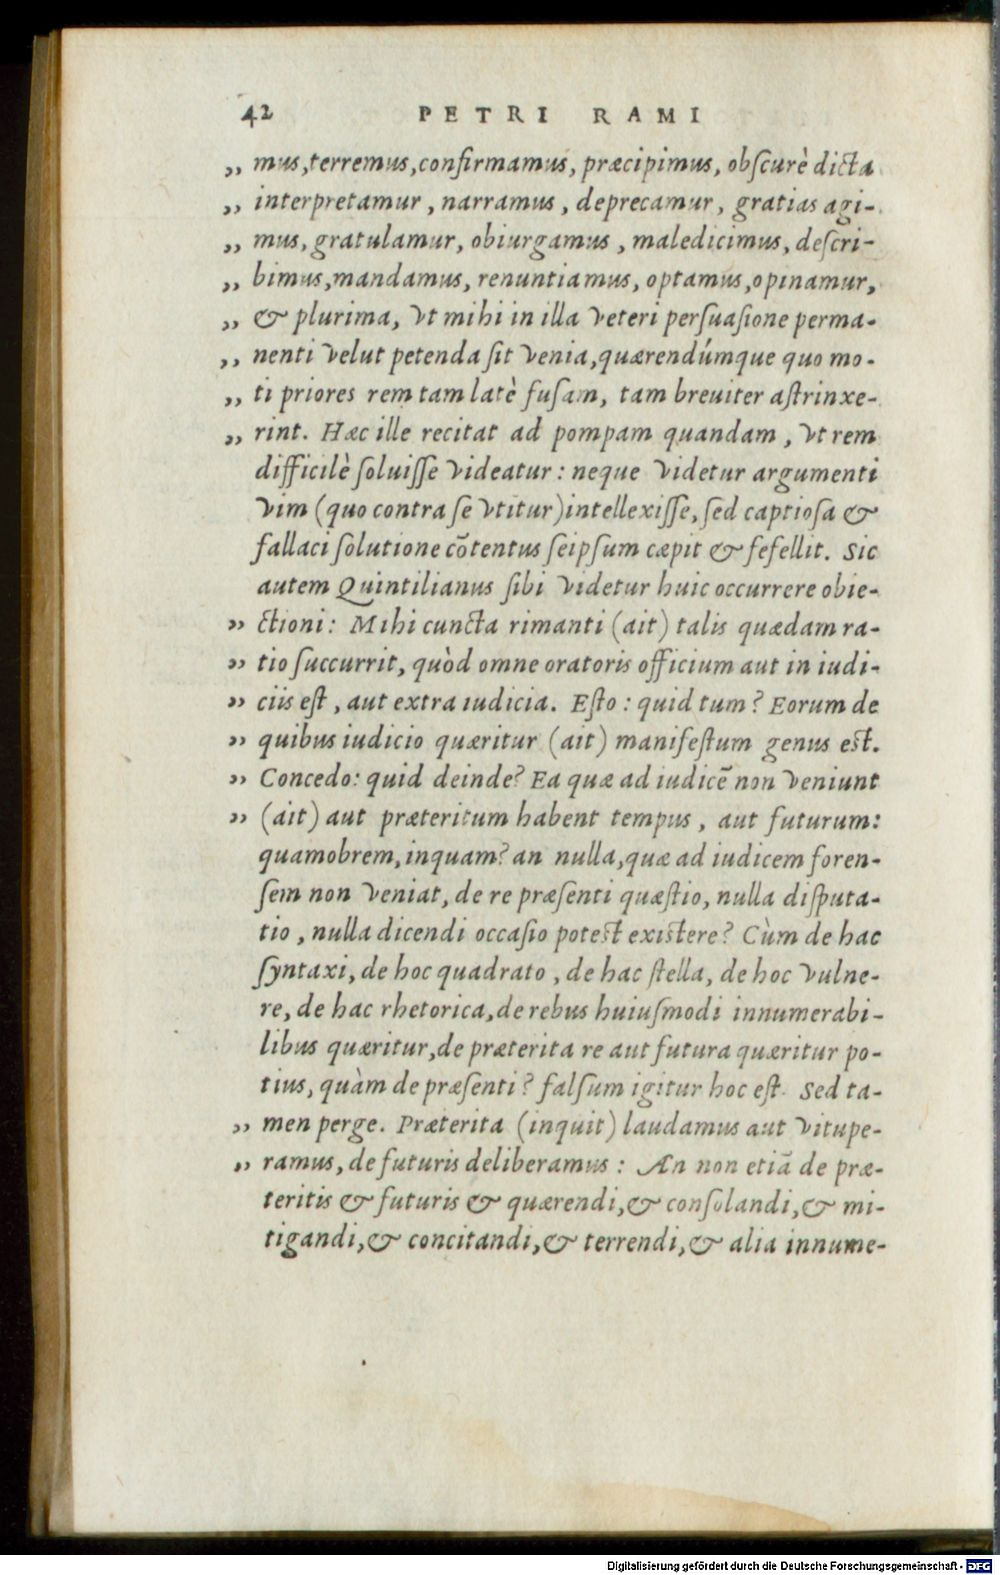 42 PETRI RAMI
„ mus,terremus,confirmamus, præcipimus, obſcurè dicta
„ interpretamur, narramus, deprecamur, gratias agi-
„ mus, gratulamur, obiurgamus, maledicimus, deſcri-
„ bimus,mandamus, renuntiamus, optamus,opinamur,
„ & plurima, vt mihi in illa veteri perſuaſione perma-
„ nenti velut petenda ſit venia,quærendúmque quo mo-
„ ti priores rem tam latè fuſam, tam breuiter aſtrinxe-
„ rint. Hæc ille recitat ad pompam quandam, vt rem
difficilè ſoluiſſe videatur: neque videtur argumenti
vim (quo contra ſe vtitur)intellexiſſe, ſed captioſa &
fallaci ſolutione cōtentus ſeipſum cæpit & fefellit. Sic
autem Quintilianus ſibi videtur huic occurrere obie-
„ ctioni: Mihi cuncta rimanti (ait) talis quædam ra-
„ tio ſuccurrit, quòd omne oratoris officium aut in iudi-
„ ciis eſt, aut extra iudicia. Eſto: quid tum? Eorum de
„ quibus iudicio quæritur (ait) manifeſtum genus est.
„ Concedo: quid deinde? Ea quæ ad iudicē non veniunt
„ (ait) aut præteritum habent tempus, aut futurum:
quamobrem, inquam? an nulla,quæ ad iudicem foren-
ſem non veniat, de re præſenti quæſtio, nulla diſputa-
tio, nulla dicendi occaſio potest existere? Cùm de hac
ſyntaxi, de hoc quadrato, de hac ſtella, de hoc vulne-
re, de hac rhetorica,de rebus huiuſmodi innumerabi-
libus quæritur,de præterita re aut futura quæritur po-
tius, quàm de præſenti? falſum igitur hoc eſt. Sed ta-
„ men perge. Præterita (inquit) laudamus aut vitupe-
„ ramus, de futuris deliberamus: An non etiā de præ-
teritis & futuris & quærendi,& conſolandi,& mi-
tigandi,& concitandi,& terrendi,& alia innume-
Digitalisierung gefördert durch die Deutsche Forschungsgemeinschaft - DFG